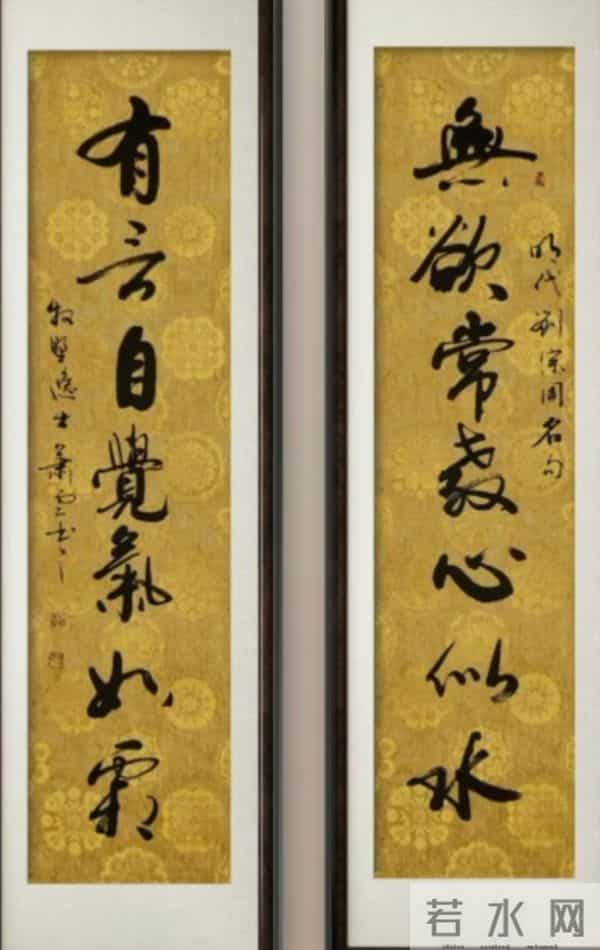 無欲常教心似水
明代劉宗周名句
有言自覺氣如霜
若水网